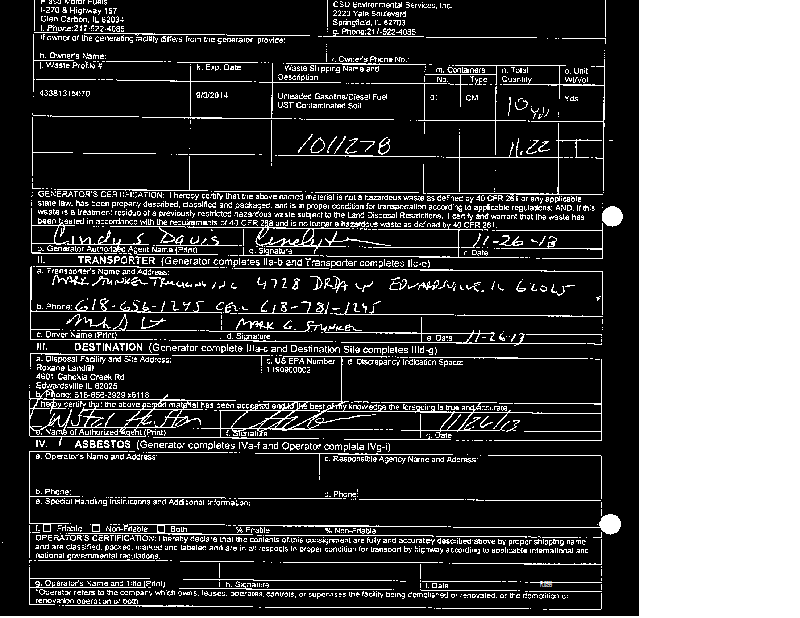 Motor Fuels
I-270 & Highway 157
Glen Carbon, IL 62034
f. Phone: 217-522-4085
CSD Environmental Services, Inc.
2220 Yale Boulevard
Springfield, IL 62703
g. Phone: 217-522-4085
If owner of the generating facility differs from the generator, provide:
h. Owner's Name:
i. Owner's Phone No.:
j. Waste Profile #
k. Exp. Date
Waste Shipping Name and
Description
m. Containers
No. Type
n. Total
Quantity
o. Unit
Wt/Vol
43381315070
9/3/2014
Unleaded Gasoline/Diesel Fuel
UST Contaminated Soil
01
CM
10 yd
Yds
1011278
11.22
GENERATOR'S CERTIFICATION: I hereby certify that the above named material is not a hazardous waste as defined by 40 CFR 261 or any applicable
state law, has been properly described, classified and packaged, and is in proper condition for transportation according to applicable regulations; AND, if this
waste is a treatment residue of a previously restricted hazardous waste subject to the Land Disposal Restrictions, I certify and warrant that the waste has
been treated in accordance with the requirements of 40 CFR 268 and is no longer a hazardous waste as defined by 40 CFR 261.
Cindy S Davis
11-26-13
p. Generator Authorized Agent Name (Print)
q. Signature
r. Date
II. TRANSPORTER (Generator completes IIa-b and Transporter completes IIc-e)
a. Transporter's Name and Address:
MARK STUNKEL TRUCKING INC 4728 DRDA LN EDWARDSVILLE, IL 62025
b. Phone: 618-656-1245 CELL 618-781-1245
MARK G. STUNKEL
11-26-13
c. Driver Name (Print)
d. Signature
e. Date
III. DESTINATION (Generator complete IIIa-c and Destination Site completes IIId-g)
a. Disposal Facility and Site Address:
c. US EPA Number
d. Discrepancy Indication Space:
Roxana Landfill
4601 Cahokia Creek Rd
Edwardsville IL 62025
b. Phone: 618-656-2929 x6118
I hereby certify that the above named material has been accepted and to the best of my knowledge the foregoing is true and accurate.
11/26/13
e. Name of Authorized Agent (Print)
f. Signature
g. Date
IV. ASBESTOS (Generator completes IVa-f and Operator complete IVg-i)
a. Operator's Name and Address:
c. Responsible Agency Name and Address:
b. Phone:
d. Phone:
e. Special Handling Instructions and Additional Information:
f. Friable Non-Friable Both % Friable % Non-Friable
OPERATOR'S CERTIFICATION: I hereby declare that the contents of this consignment are fully and accurately described above by proper shipping name
and are classified, packed, marked and labeled and are in all respects in proper condition for transport by highway according to applicable international and
national governmental regulations.
g. Operator's Name and Title (Print)
h. Signature
i. Date
*Operator refers to the company which owns, leases, operates, controls, or supervises the facility being demolished or renovated, or the demolition or
renovation operation or both